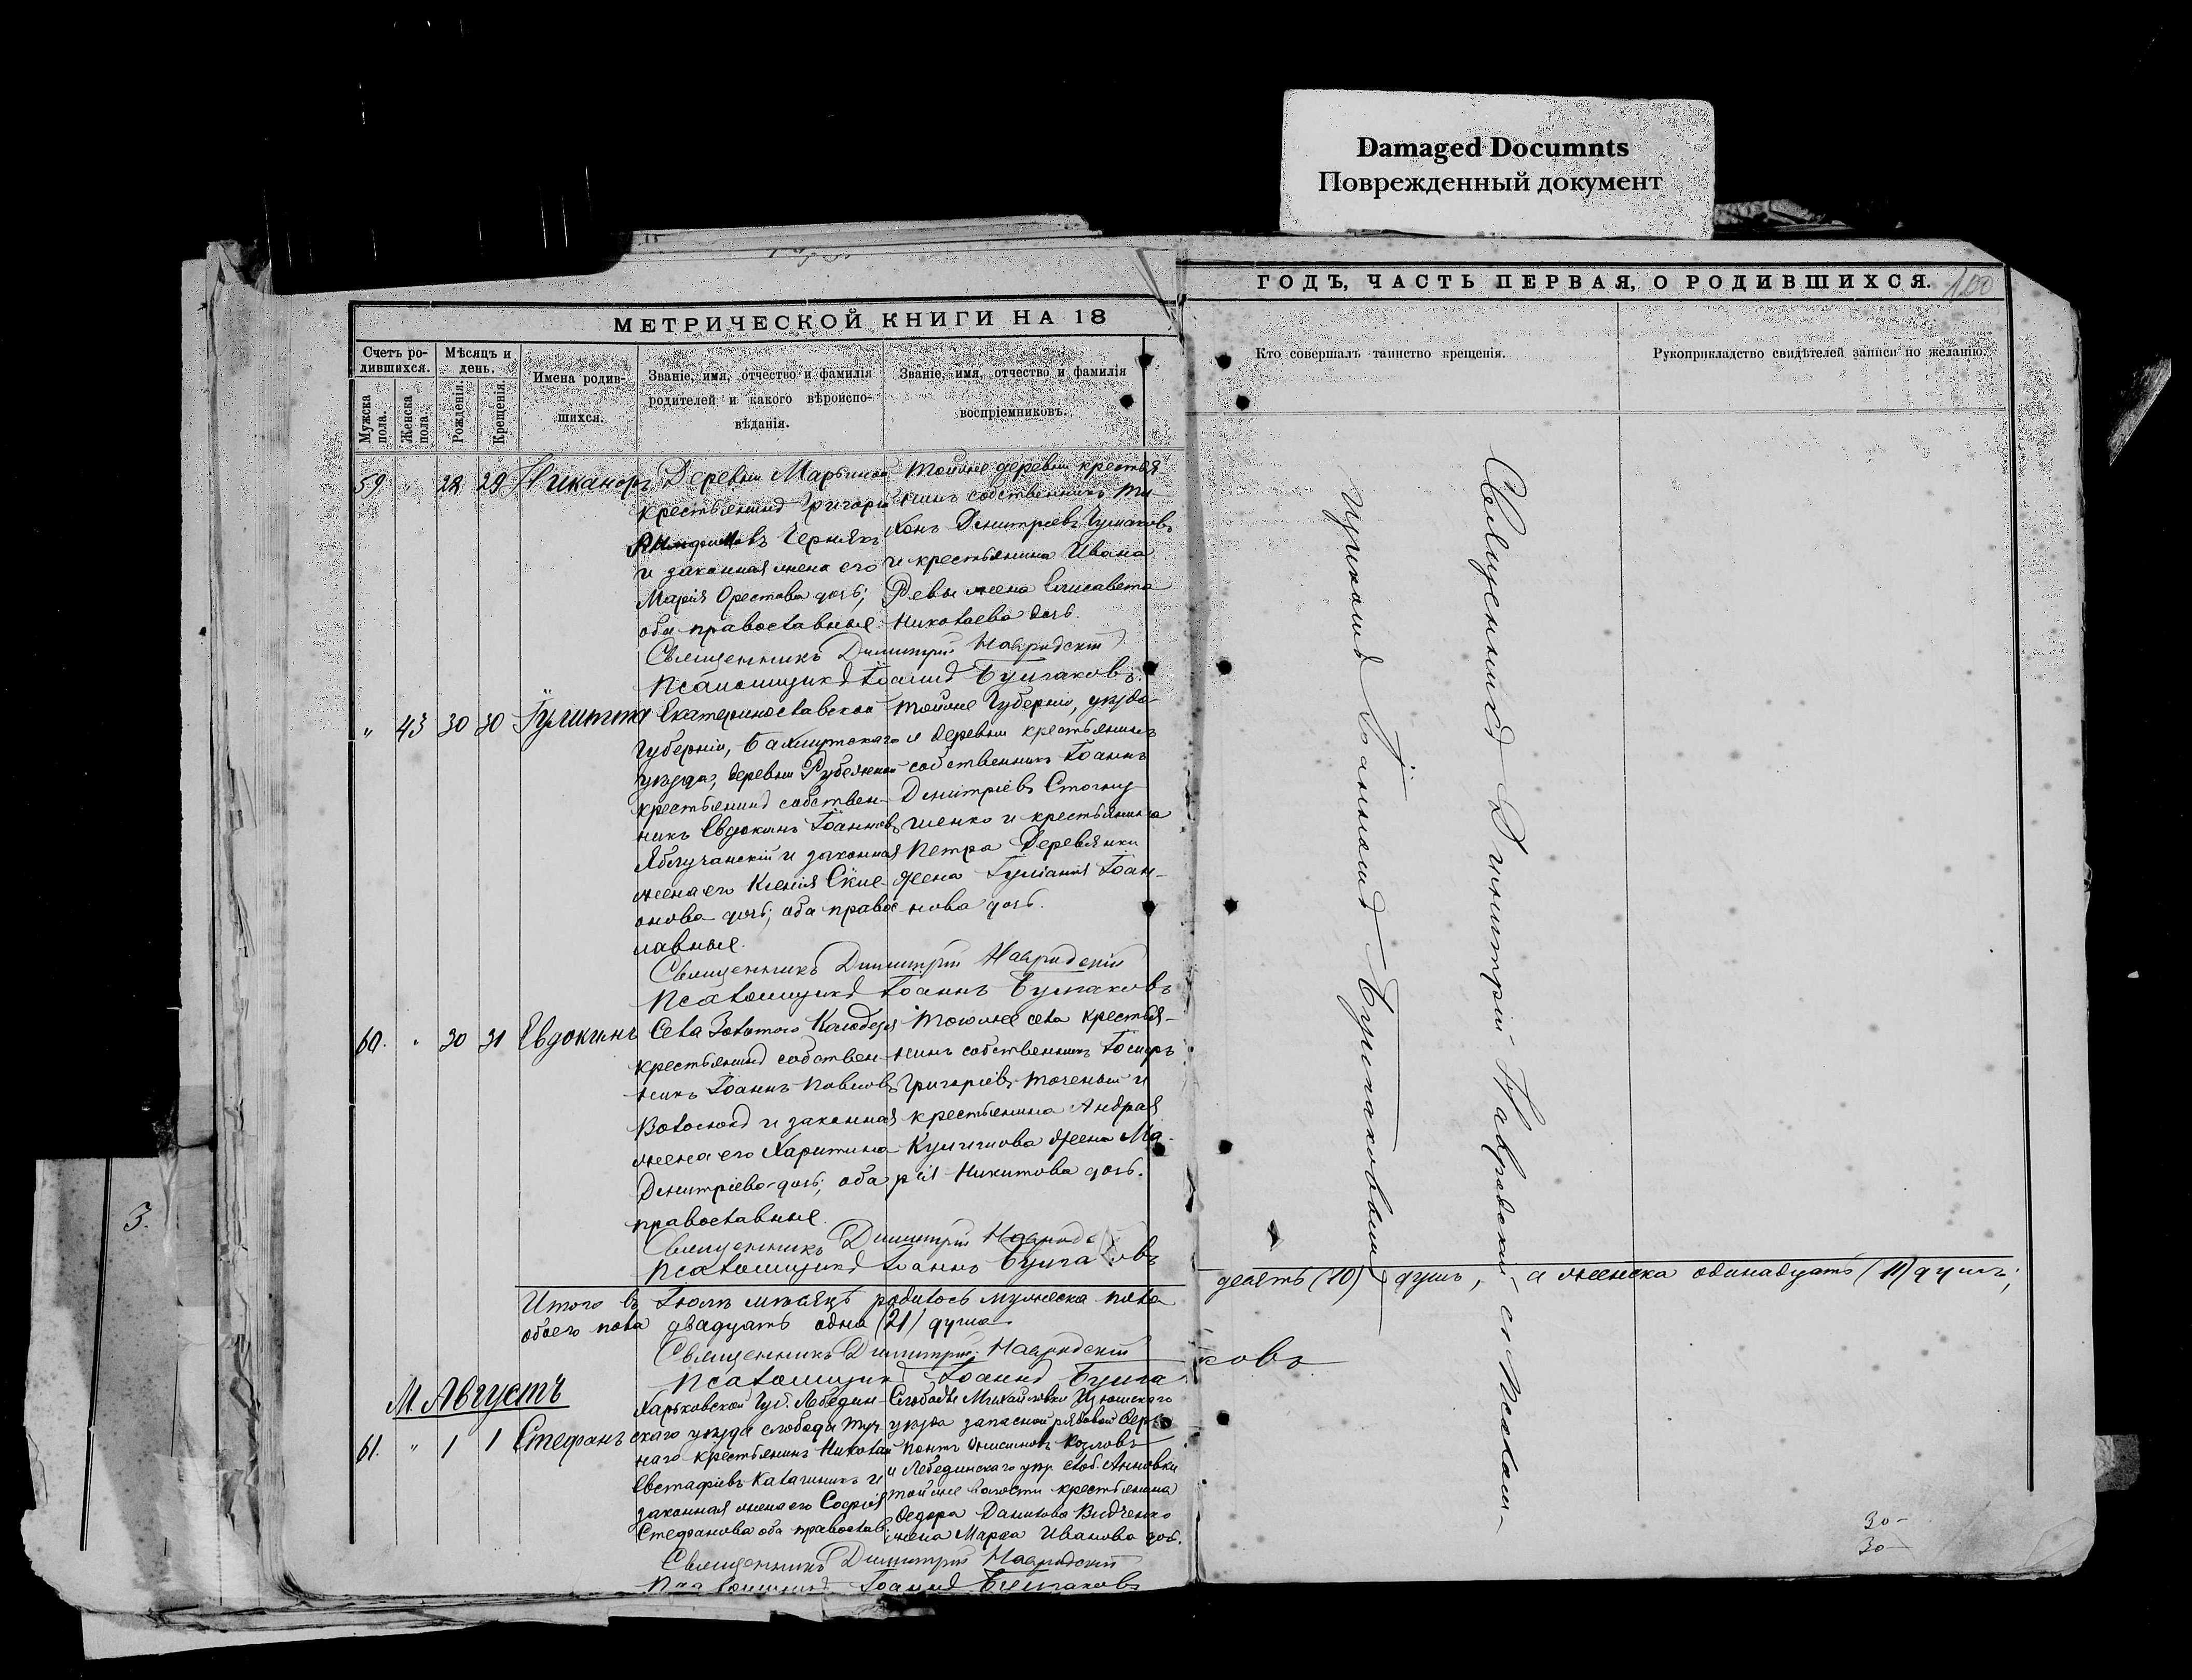 Damaged Documnts
Поврежденный документ
МЕТРИЧЕСКОЙ КНИГИ НА 18
ГОДЪ, ЧАСТЬ ПЕРВАЯ, О РОДИВШИХСЯ.
100
Счетъ ро-
дившихся.
Мѣсяцъ и
день.
Мужска
пола.
Женска
пола.
Рожденія.
Крещенія.
Имена родив-
шихся.
Званіе, имя, отчество и фамилія
родителей и какого вѣроиспо-
вѣданія.
Званіе, имя, отчество и фамилія
воспріемниковъ.
Кто совершалъ таинство крещенія.
Рукоприкладство свидѣтелей записи по желанію.
59 " 28 29 Никаноръ
Деревни Марьиной
крестьянинъ Григорій
Чернякъ
и законная жена его
Марія Орестова дочь;
оба православные.
Тойже деревни крестья-
нинъ собственникъ Ти-
хонъ Димитріевъ Чумаковъ
и крестьянина Ивана
Ревы жена Елисавета
Николаева дочь.
Священникъ Димитрій
Псаломщикъ Іоаннъ Булгаковъ.
" 43 30 30 Іулитта
Екатеринославской
Губерніи, Бахмутскаго
уѣзда, деревни Рубежной
крестьянинъ собствен-
никъ Евдокимъ Іоанновъ
Яблучанскій и законная
жена его Ксенія Сѵме-
онова дочь; оба правос-
лавные.
Тойже Губерніи, уѣзда
и деревни крестьянинъ
собственникъ Іоаннъ
Димитріевъ
и крестьянина
Петра Деревянки
жена Іуліанія Іоан-
нова дочь.
Священникъ Димитрій
Псаломщикъ Іоаннъ Булгаковъ
60. " 30 31 Евдокимъ
Села Золотого Колодезя
крестьянинъ собствен-
никъ Іоаннъ Павловъ
и законная
жена его Харитина
Димитріева дочь; оба
православные.
Тогоже села крестья-
нинъ собственникъ Іосифъ
Григоріевъ Точеный и
крестьянина Андрея
жена Ма-
рія Никитова дочь.
Священникъ Димитрій
Псаломщикъ Іоаннъ Булгаковъ
Итого въ Іюлѣ мѣсяцѣ родилось мужеска пола
десять (10) душъ, а женска одинадцать (11) душъ;
обоего пола двадцать одна (21) душа.
Священникъ Димитрій
Псаломщикъ Іоаннъ Булга
ковъ
М. Августъ
61. " 1 1 Стефанъ
Харьковской Губ. Лебедин-
скаго уѣзда слободы
крестьянинъ Николай
Евстафіевъ и
законная жена его Софія
Стефанова оба православ.
Слободы Михайловки Изюмскаго
уѣзда запасной рядовой
Козловъ
и Лебединскаго уѣз. слоб. Анновки
тойже волости крестьянина
Ѳедора Данилова
жена Марѳа Иванова доч.
Священникъ Димитрій
Іоаннъ Булгаковъ
Священникъ Димитрій съ Псалом-
щикомъ Іоанномъ Булгаковымъ
3.
30-
30-